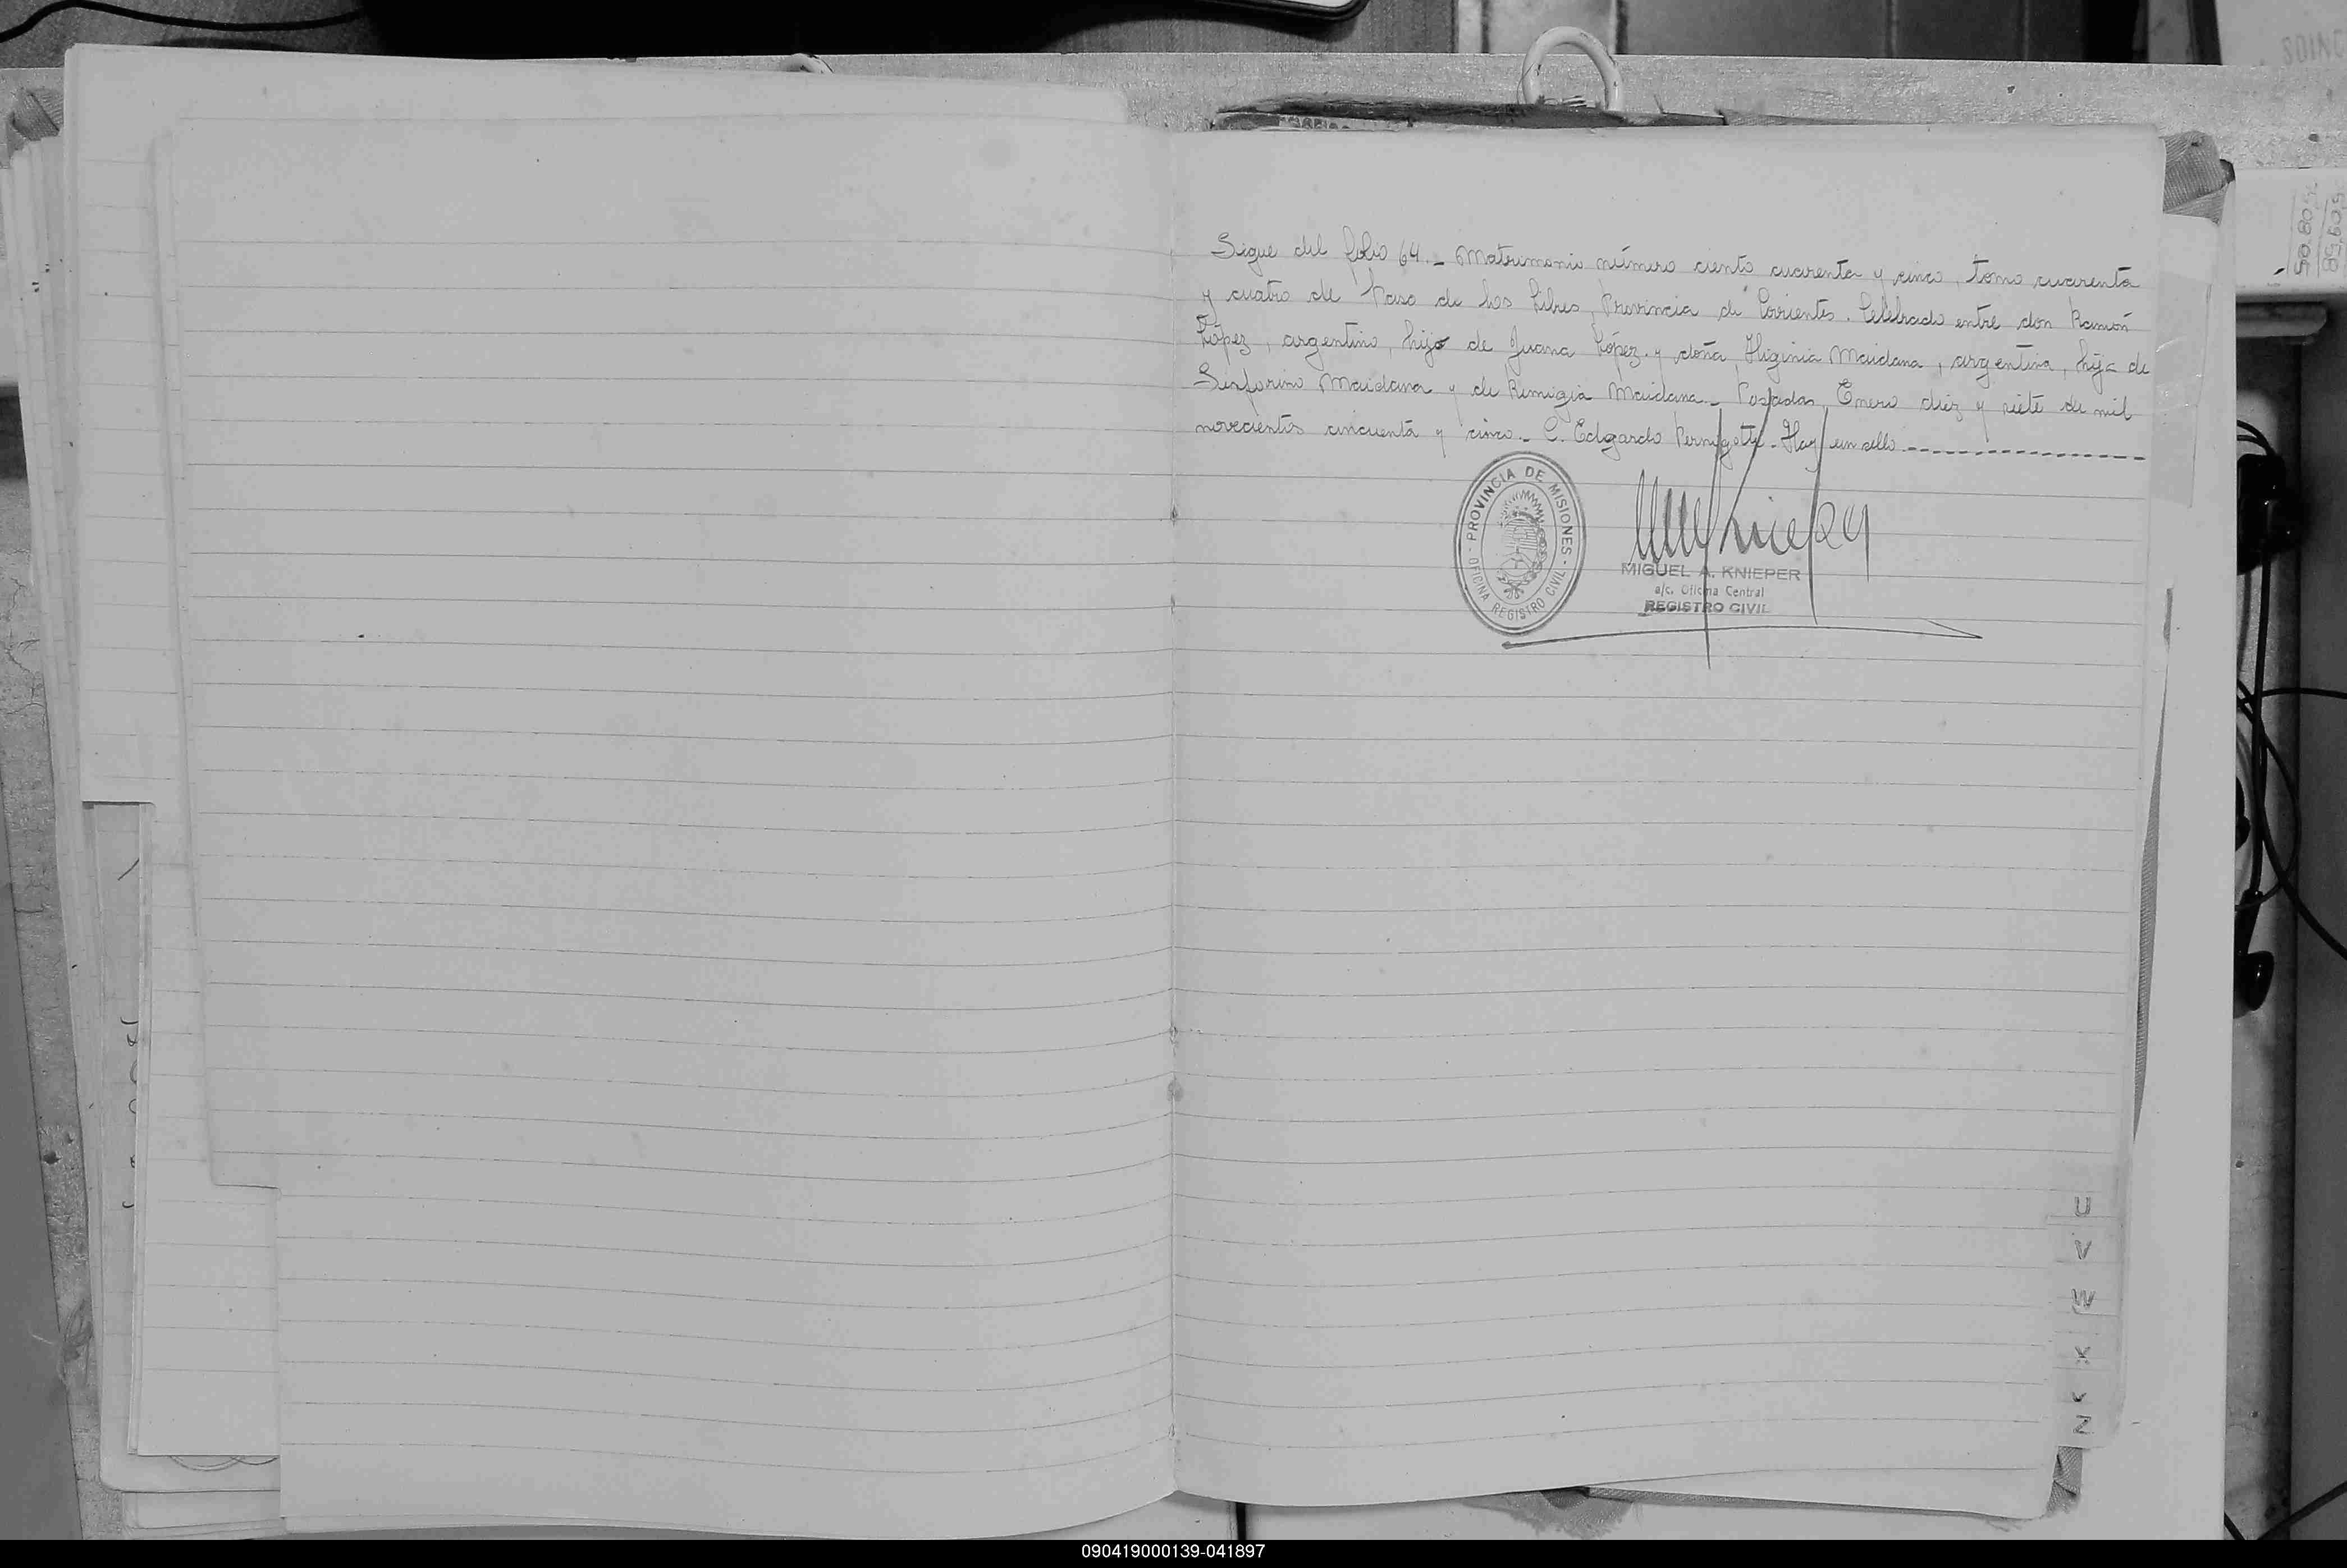 Sigue del folio 64.- Matrimonio número ciento cuarenta y cinco, tomo cuarenta
y cuatro de Paso de los Libres, Provincia de Corrientes. Celebrado entre don Ramón
López, argentino, hijo de Juana López y doña Higinia Maidana, argentina, hija de
Sinforino Maidana y de Remigia Maidana.- Posadas, Enero diez y siete de mil
novecientos cincuenta y cinco.- C. Edgardo Pernigotti.- Hay un sello.
PROVINCIA DE MISIONES
OFICINA REGISTRO CIVIL
MIGUEL A. KNIEPER
a/c. Oficina Central
REGISTRO CIVIL
U
V
W
X
Z
090419000139-041897